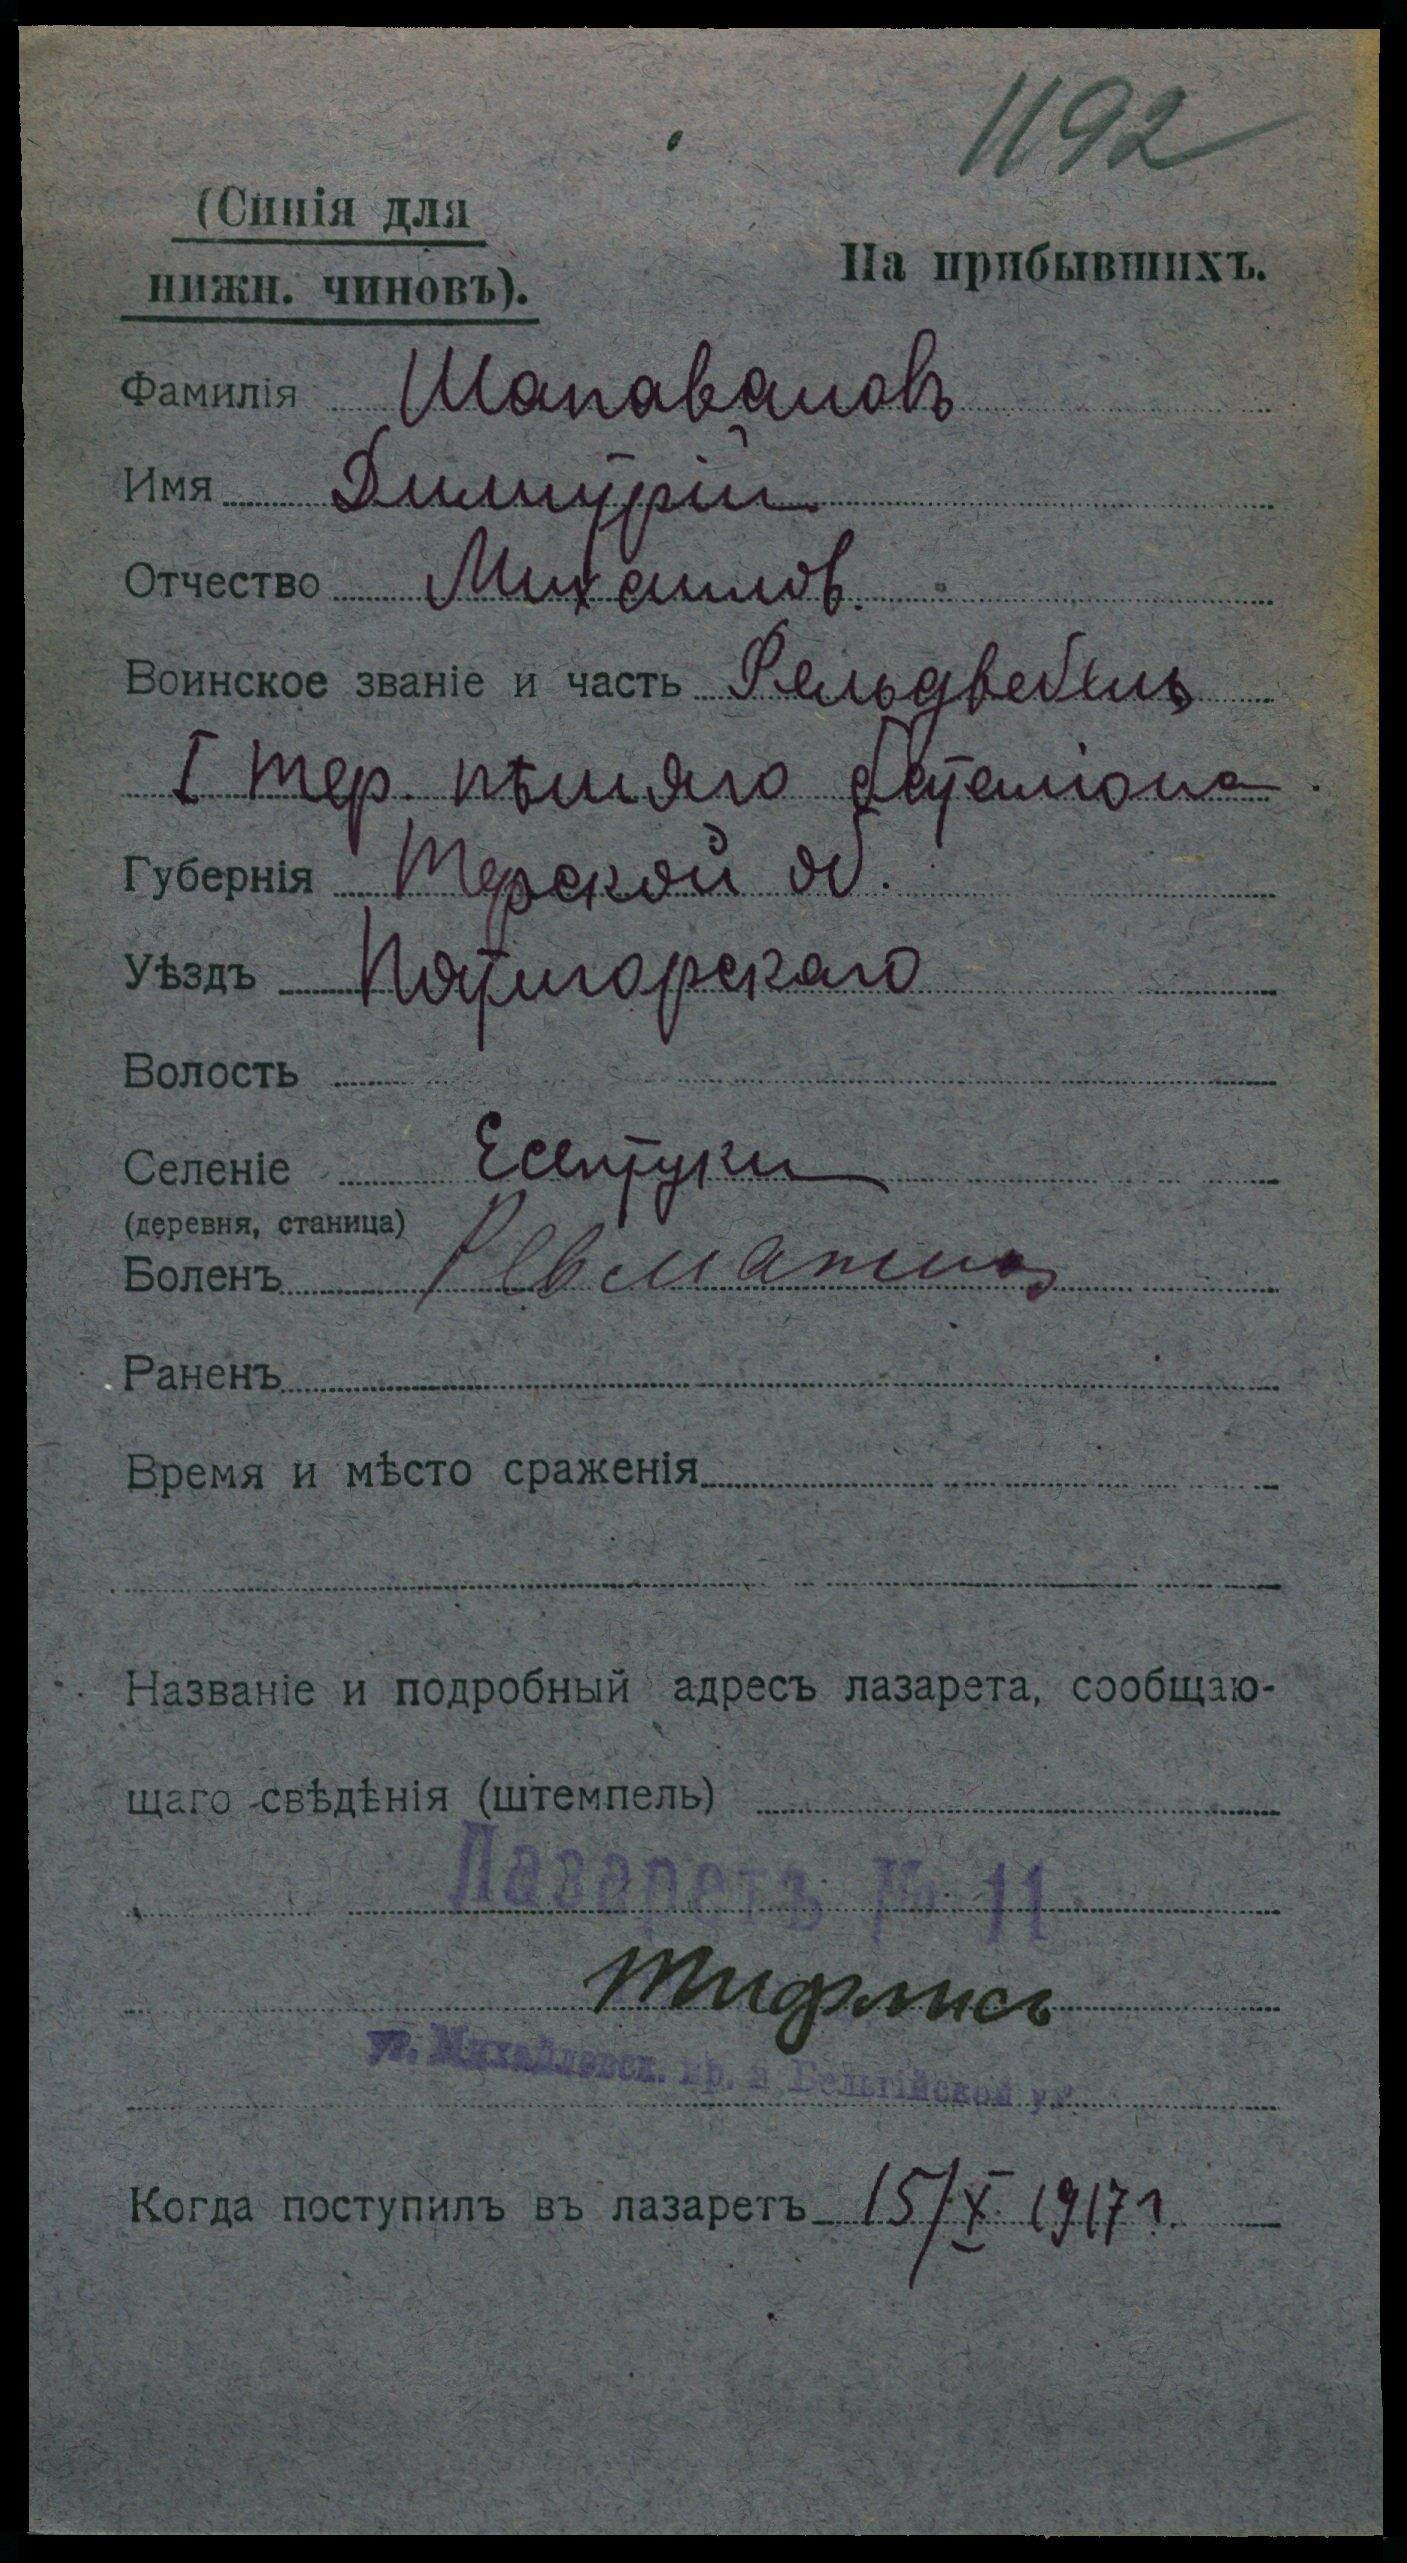 1192
(Синія для
нижн. чиновъ).
На прибывшихъ.
Фамилія Шапаваловъ
Имя Димитрій
Отчество Михаилов.
Воинское званіе и часть Фельдвебель
I тер. пѣшяго баталіона
Губернія Терской об.
Уѣздъ Пятигорскаго
Волость
Селеніе Есентуки
(деревня, станица)
Боленъ Ревматизм
Раненъ
Время и мѣсто сраженія
Названіе и подробный адресъ лазарета, сообщаю-
щаго свѣдѣнія (штемпель)
Лазаретъ № 11
Тифлисъ
уг. Михайловск. пр. и Бельгійской ул.
Когда поступилъ въ лазаретъ 15/X 1917 г.